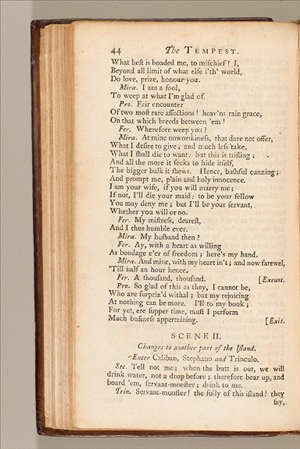 44 The TEMPEST.
What beſt is boaded me, to miſchief! I,
Beyond all limit of what elſe i'th' world,
Do love, prize, honour you.
Mira. I am a fool,
To weep at what I'm glad of.
Pro. Fair encounter
Of two moſt rare affections! heav'ns rain grace,
On that which breeds between 'em!
Fer. Wherefore weep you?
Mira. At mine unworthineſs, that dare not offer,
What I deſire to give; and much leſs take,
What I ſhall die to want: but this is trifling;
And all the more it ſeeks to hide itſelf,
The bigger bulk it ſhews. Hence, baſhful cunning;
And prompt me, plain and holy innocence.
I am your wife, if you will marry me;
If not, I'll die your maid: to be your fellow
You may deny me; but I'll be your ſervant,
Whether you will or no.
Fer. My miſtreſs, deareſt,
And I thus humble ever.
Mira. My huſband then?
Fer. Ay, with a heart as willing
As bondage e'er of freedom; here's my hand.
Mira. And mine, with my heart in't; and now farewel,
'Till half an hour hence.
Fer. A thouſand, thouſand. [Exeunt.
Pro. So glad of this as they, I cannot be,
Who are ſurpriz'd withal; but my rejoicing
At nothing can be more. I'll to my book;
For yet, ere ſupper time, muſt I perform
Much buſineſs appertaining. [Exit.
SCENE II.
Changes to another part of the Iſland.
Enter Caliban, Stephano and Trinculo.
Ste. Tell not me; when the butt is out, we will
drink water, not a drop before; therefore bear up, and
board 'em, ſervant-monſter; drink to me.
Trin. Servant-monſter! the folly of this iſland! they
ſay,